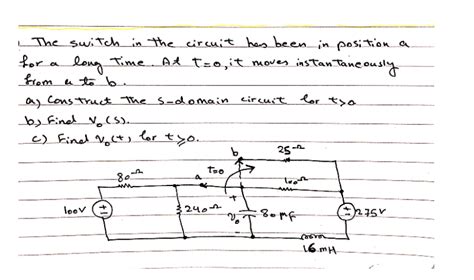 The switch in the circuit has been in position a
for a long time. At t=0, it moves instantaneously
from a to b.
a) Construct the s-domain circuit for t>0
b) Find V₀(s).
c) Find V₀(t) for t≥0.
b 25Ω
80Ω a t=0
100V 240Ω + V₀ - 275V
16mH